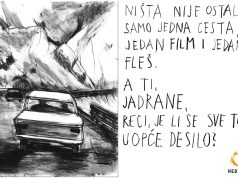 NIŠTA NIJE OSTALO
SAMO JEDNA CESTA,
JEDAN FILM I JEDAN
FLEŠ.
A TI,
JADRANE,
RECI, JE LI SE SVE TO
UOPĆE DESILO?